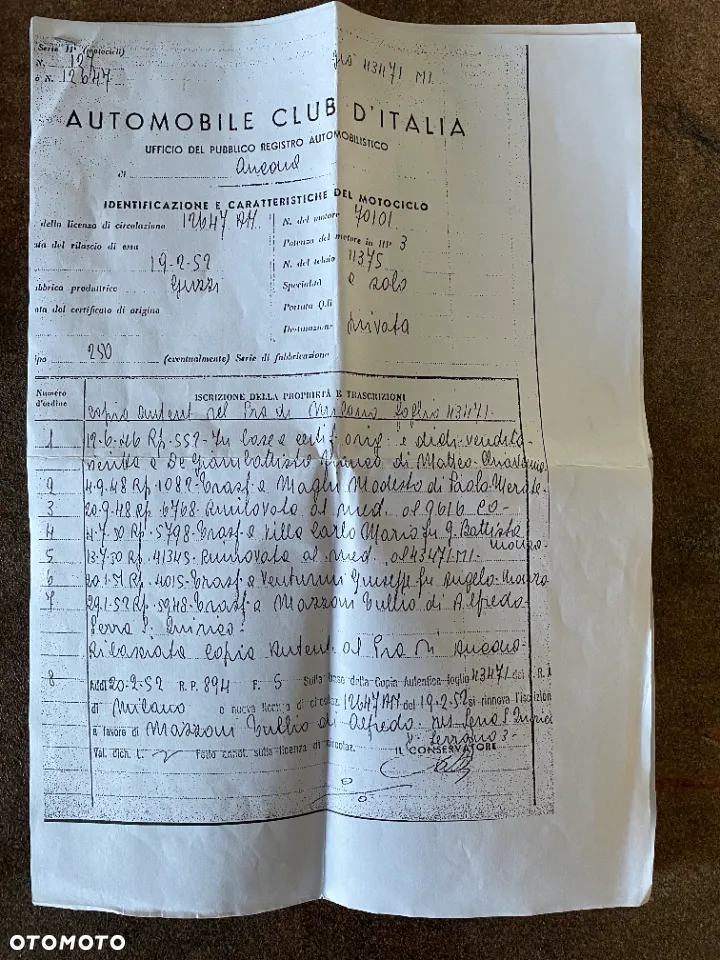 Serie IIª (motocicli)
N. 127
o N. 12647
già 43471 MI
AUTOMOBILE CLUB D'ITALIA
UFFICIO DEL PUBBLICO REGISTRO AUTOMOBILISTICO
di Ancona
IDENTIFICAZIONE E CARATTERISTICHE DEL MOTOCICLO
della licenza di circolazione 12647 AN
N. del motore 70101
ata del rilascio di essa
19-2-52
Potenza del motore in HP 3
N. del telaio 11375
abbrica produttrice Guzzi
Specialità a solo
ata del certificato di origine
Portata Q.li
Destinazione privata
ipo 250 (eventualmente) Serie di fabbricazione
Numero d'ordine
ISCRIZIONE DELLA PROPRIETÀ E TRASCRIZIONI
copia autent del Pra di Milano foglio 43471.
1 12-6-46 Rp. 552- In base a certif. orig. e dich. vendita
iscritta a De Giambattista di Matteo
2 4-9-48 Rp. 1082- Trasf. a Maghi Modesto di Paolo
3 20-9-48 Rp. 6768- Rinnovata al med. al 9616 CO-
4 4-7-50 Rp. 5798- Trasf. a Villa Carlo Mario fu G. Battista
Monza-
5 13-7-50 Rp. 41345- Rinnovata al med. al 43471 MI-
6 20-1-51 Rp. 4015- Trasf. a Venturini Giuseppe fu Angelo- Monza
7 29-1-52 Rp. 5948- Trasf. a Mazzoni Tullio di Alfredo
Serra S. Quirico-
Rilasciata copia autent. al Pra di Ancona-
8 Addì 20-2-52 R. P. 894 F. 5 Sulla base della Copia Autentica foglio 43471 del P. R. A.
di Milano o nuova licenza di circolaz. 12647 AN del 19-2-52 si rinnova l'iscrizion
a favore di Mazzoni Tullio di Alfredo. res Serra S. Quirico
Val. dich. L. Fatto annot. sulla licenza di circolaz.
IL CONSERVATORE
OTOMOTO